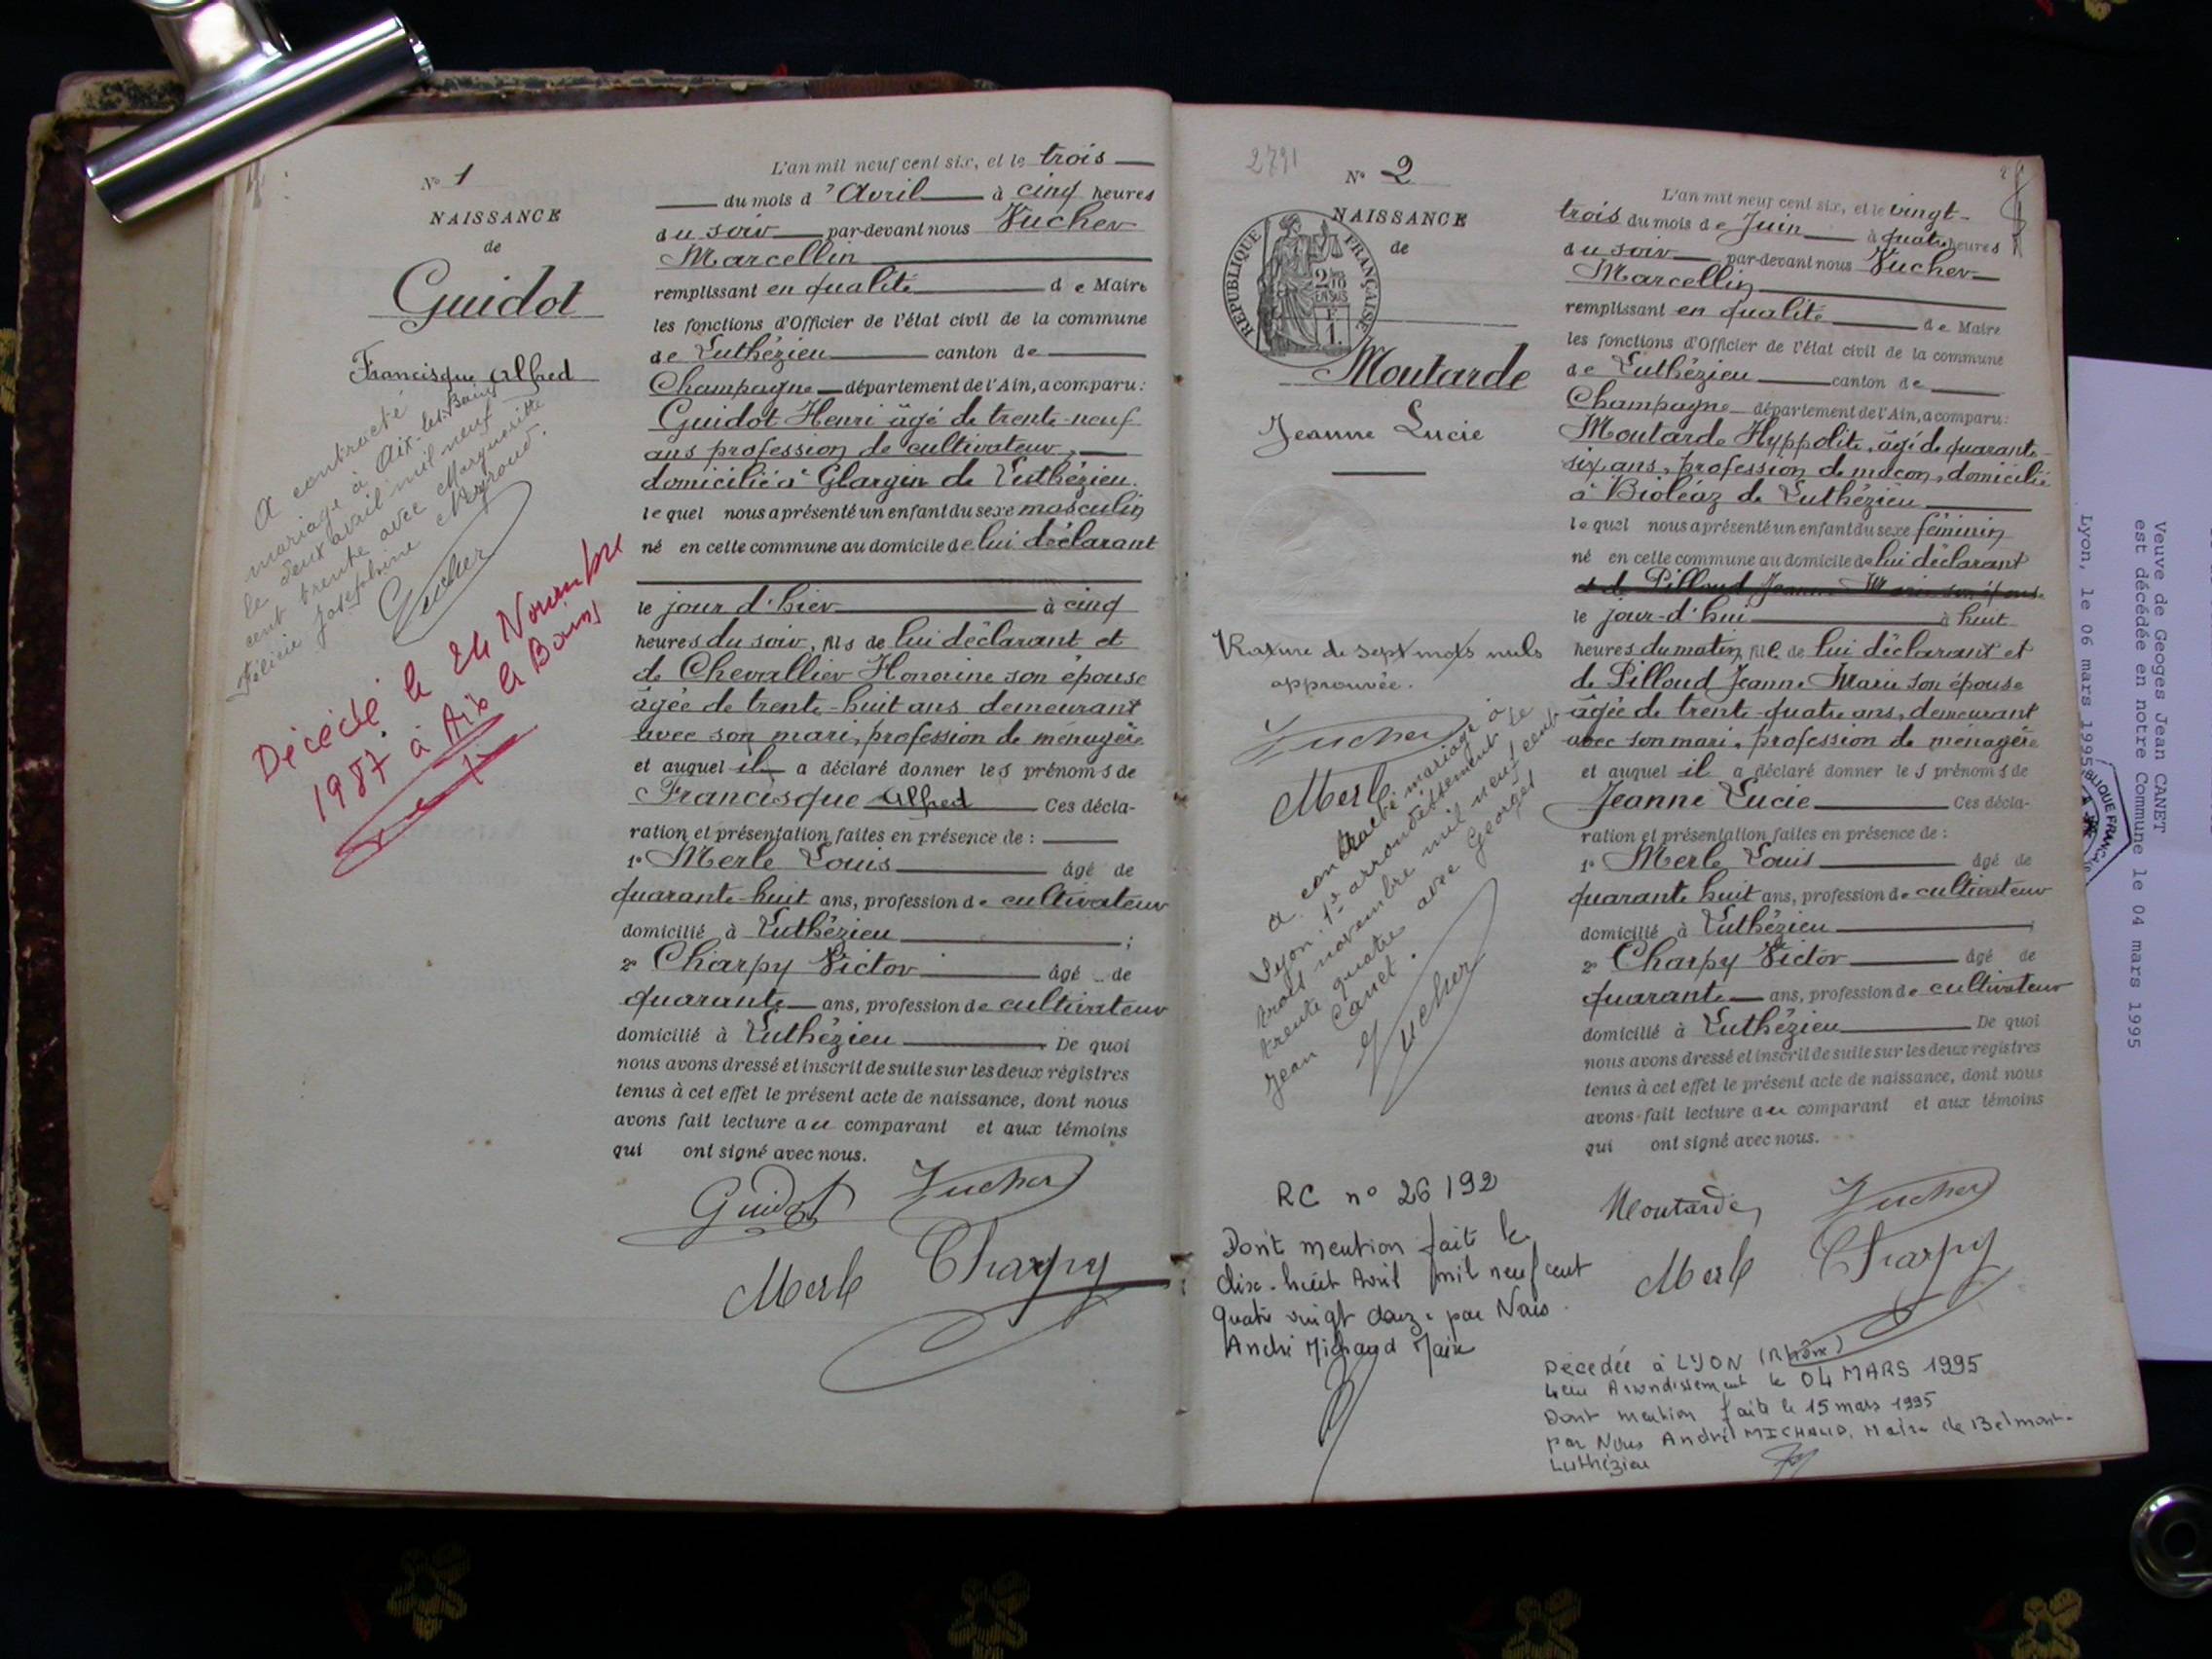 N° 1
NAISSANCE
de
Guidot
Francisque Alfred
A contracté
mariage à Aix-les-Bains
le deux avril mil neuf
cent trente avec Marguerite
Félicie Joséphine
Vucher
Décédé le 24 Novembre
1987 à Aix les Bains
L'an mil neuf cent six, et le trois
du mois d'Avril à cinq heures
du soir par-devant nous Vucher
Marcellin
remplissant en qualité de Maire
les fonctions d'Officier de l'état civil de la commune
de Luthézieu canton de
Champagne département de l'Ain, a comparu:
Guidot Henri âgé de trente-neuf
ans profession de cultivateur,
domicilié à Glargin de Luthézieu.
lequel nous a présenté un enfant du sexe masculin
né en cette commune au domicile de lui déclarant
le jour d'hier à cinq
heures du soir, fils de lui déclarant et
de Chevallier Honorine son épouse
âgée de trente-huit ans demeurant
avec son mari, profession de ménagère
et auquel il a déclaré donner les prénoms de
Francisque Alfred Ces décla-
ration et présentation faites en présence de :
1° Merle Louis âgé de
quarante-huit ans, profession de cultivateur
domicilié à Luthézieu ;
2° Charpy Victor âgé de
quarante ans, profession de cultivateur
domicilié à Luthézieu De quoi
nous avons dressé et inscrit de suite sur les deux régistres
tenus à cet effet le présent acte de naissance, dont nous
avons fait lecture au comparant et aux témoins
qui ont signé avec nous.
Guidot Vucher
Merle Charpy
2791
N° 2
NAISSANCE
de
RÉPUBLIQUE FRANÇAISE
Moutarde
Jeanne Lucie
Rature de sept mots nuls
approuvée.
Vucher
Merle
A contracté mariage à
Lyon 1er arrondissement le
trois novembre mil neuf cent
trente quatre avec Georges
Jean Canet.
Vucher
RC n° 26 192
Dont mention faite le
dix-huit Avril mil neuf cent
quatre vingt douze par Nous
André Michaud Maire
L'an mil neuf cent six, et le vingt-
trois du mois de Juin à quatre heures
du soir par-devant nous Vucher
Marcellin
remplissant en qualité de Maire
les fonctions d'Officier de l'état civil de la commune
de Luthézieu canton de
Champagne département de l'Ain, a comparu:
Moutarde Hyppolite, âgé de quarante-
six ans, profession de maçon, domicilié
à Bioléaz de Luthézieu
lequel nous a présenté un enfant du sexe féminin
né en cette commune au domicile de lui déclarant
et de Pilloud Jeanne Marie son épouse
le jour-d'hui à huit
heures du matin, fille de lui déclarant et
de Pilloud Jeanne Marie son épouse
âgée de trente-quatre ans, demeurant
avec son mari, profession de ménagère
et auquel il a déclaré donner les prénoms de
Jeanne Lucie Ces décla-
ration et présentation faites en présence de :
1° Merle Louis âgé de
quarante huit ans, profession de cultivateur
domicilié à Luthézieu ;
2° Charpy Victor âgé de
quarante ans, profession de cultivateur
domicilié à Luthézieu De quoi
nous avons dressé et inscrit de suite sur les deux registres
tenus à cet effet le présent acte de naissance, dont nous
avons fait lecture au comparant et aux témoins
qui ont signé avec nous.
Moutarde Vucher
Merle Charpy
Décédée à LYON (Rhône)
4ème Arrondissement le 04 MARS 1995
Dont mention faite le 15 mars 1995
par Nous André MICHAUD, Maire de Belmont-
Luthézieu
Veuve de Geoges Jean CANET
est décédée en notre Commune le 04 mars 1995
Lyon, le 06 mars 1995